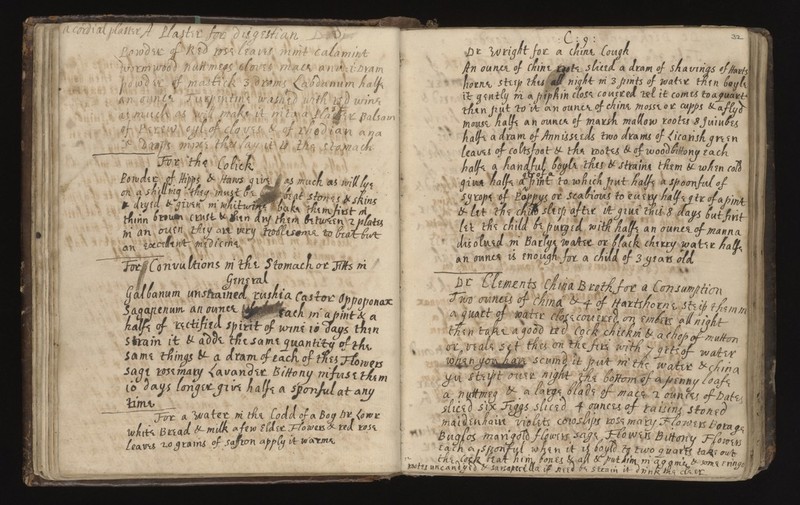 a Cordial plaster A Plaster for disgestian
Powder of Red rose leaves mint Calamint
wormwood nuttmegs cloves mace ana i Dram
Powder of mastick 3 drams Labdunum halfe
an ounce Turpentine washed with red wine
as much as will make it into a Balsom
of Perew oyl of cloves & of rhodian ana
drops mixe the lay it to the stomach
For the Colick
Powder of Hipps & Haws give as much as will lye
on a shilling they must be beat stones & skins
& dryed & given in whitwine bake them first in
thinn brown crust & then dry them between 2 plates
in an oven they are very troblesome to beat but
an Excelent medicine
For Convultions in the Stomach or Fitts in
General
Galbanum unstrained rushia Castor Oppoponax
Sagapenum an ounce each in a pint & a
halfe of rectified spirit of wine 10 days then
strain it & adde the same quantity of the
same things & a dram of each of thes Flowers
sage rosemary Lavander Bittony infuse them
10 days longer give halfe a sponful at any
time
For a Water in the Codd of a Boy Dr Lowr
white Bread & milk a few Elder Flowers & red rose
leaves 20 grains of saffron apply it warme
C: 9:
32
Dr Wright for a Chine Cough
An ounce of Chine roots sliced a dram of shavings of Harts
horne steep thes all night in 3 pints of water then boyle
it gently in a pipkin close covered tel it comes to a quart
then put to it an ounce of chine mosse or cupps & a flyd
mouse halfe an ounce of marsh mallow rootes 8 Juiubes
halfe a dram of Anniseeds two drams of Licarish green
leaves of coltsfoot & the rootes & of woodbittony each
halfe a handful boyle thes & straine them & when cold
give halfe a pint to which put halfe a spoonful of
syrope of Poppys or scabious to every halfe qtr of a pint
& let the child sleep after it give this 8 days but first
let the child be purged with halfe an ounce of manna
disolved in Barlye water or black cherry water halfe
an ounce is enough for a child of 3 years old
Dr Clements China Broth for a Consumption
Two ounces of China & 4 of Hartshorne steip them in
a quart of water close covered on embers all night
then take a good red Cock chickin & a chop of mutton
or veale set thes on the fire with 7 qrts of water
when you have scumd it put in the water & china
yu steipt over night the bottom of a penny loafe
a nuttmeg & a large blade of mace 2 ounces of Dates
sliced six Figgs sliced 4 ounces of raisins stoned
maidenhaire violets cowslips rosemary Flowers borage
Buglos marigold flowers sage Flowers Bittony Flowers
each a sponful when it is boyld to two quarts take out
the Cock beat him bones & all & put him in againe & some eringo
rootes uncandyed & sarsaperella if need be strain it drink the cleer